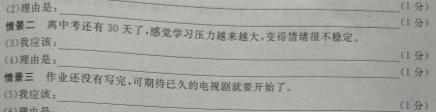 (2)理由是:(1 分)
情景二 离中考还有 30 天了,感觉学习压力越来越大,变得情绪很不稳定。
(3)我应该:(1 分)
(4)理由是:(1 分)
情景三 作业还没有写完,可期待已久的电视剧就要开始了。
(5)我应该:(1 分)
(6)理由是:(1 分)